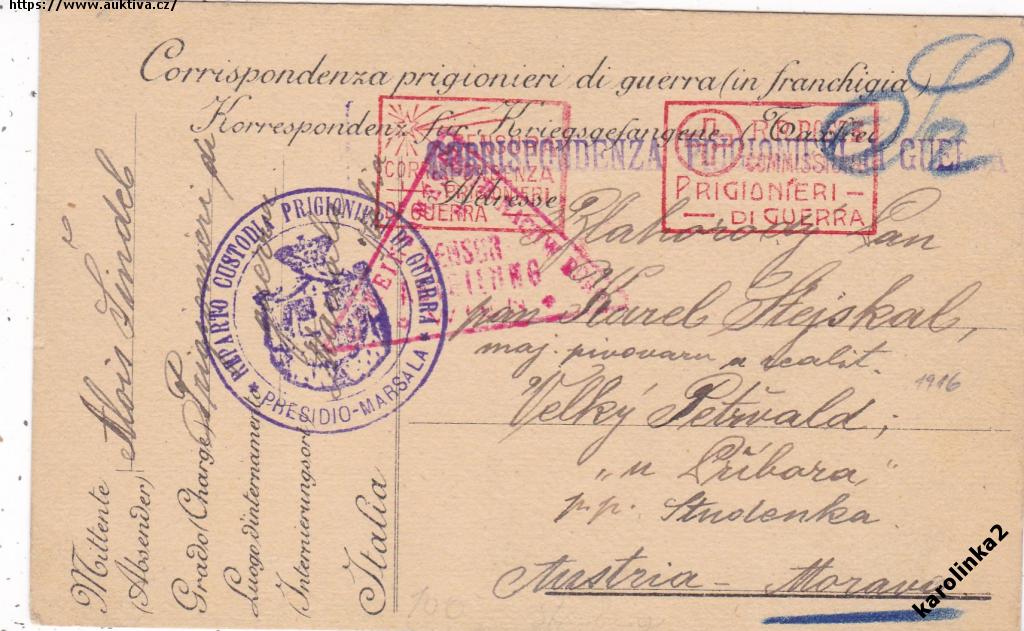 https://www.auktiva.cz/
Corrispondenza prigionieri di guerra (in franchigia)
Korrespondenz für Kriegsgefangene / Taxfrei
CORRISPONDENZA PRIGIONIERI DI GUERRA
CORRISPONDENZA
PRIGIONIERI
DI GUERRA
COMMISSIONE
PRIGIONIERI -
- DI GUERRA
Adresse
Blahorodý Pan
pan Karel Stejskal,
maj. pivovaru a realit.
1916
Velký Petřvald,
„u Příbora"
p.p. Studenka
Austria - Morava
REPARTO CUSTODIA PRIGIONIERI DI GUERRA
* PRESIDIO-MARSALA *
Mittente
(Absender) Alois Šindel
Grado (Charge) Prigionieri di
guerra
Luogo d'internamento
(Internierungsort) Marsala
Italia
karolinka2